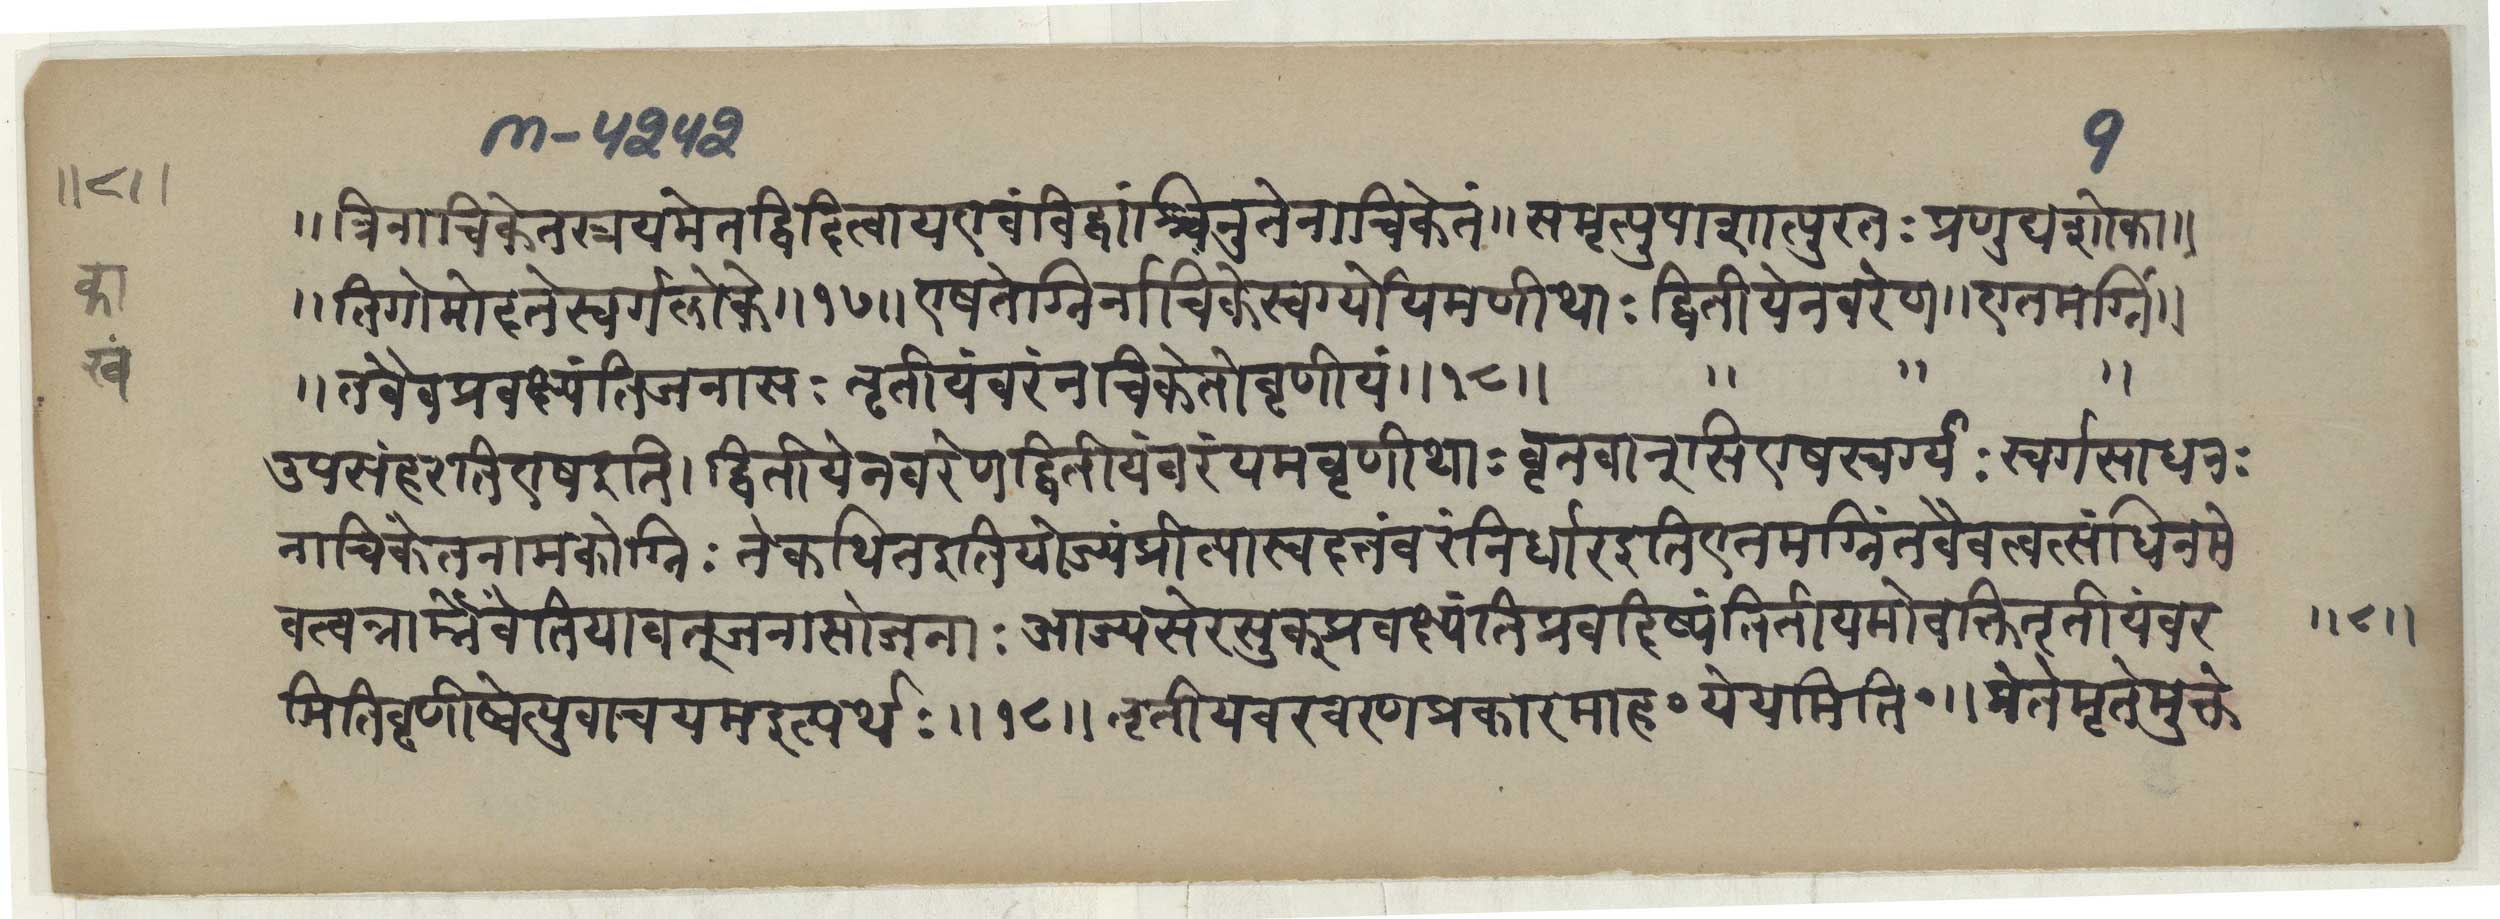 m-५२५२
१
॥८॥
का
खं
॥त्रिनाचिकेतस्त्रयमेतद्विदित्वायएवंविद्वांश्चिनुतेनाचिकेतं॥समृत्युपाशात्पुरतः प्रणुद्यशोका॥
॥तिगोमोदतेस्वर्गलोके॥१७॥एषतेग्निर्नाचिकेस्वर्ग्योयिमणीथाः द्वितीयेनवरेण॥एतमग्निं॥
॥तवैवप्रवक्ष्यंतिजनासः तृतीयंवरंनचिकेतोवृणीयं॥१८॥ ॥ ॥ ॥
उपसंहरतिएषइति। द्वितीयेनवरेणद्वितीयंवरंयमवृणीथाः वृतवान्असिएषस्वर्ग्यः स्वर्गसाधनः
नाचिकेतनामकोग्निः तेकथितइतियोज्यंप्रीत्यास्वदत्तंवरंनिर्धारइतिएतमग्निंतवैवत्वत्संधिनमे
वत्वन्नाम्नैवेतियावत्जनासोजनाः आज्यसेरसुक्प्रवक्ष्यंतिप्रवदिष्यंतितीयमोवक्तितृतीयंवर
॥८॥
मितिवृणीष्वेत्युवाचयमइत्यर्थः॥१८॥तृतीयवरवरणप्रकारमाह॰येयमिति॰॥प्रेतेमृतेमुक्ते